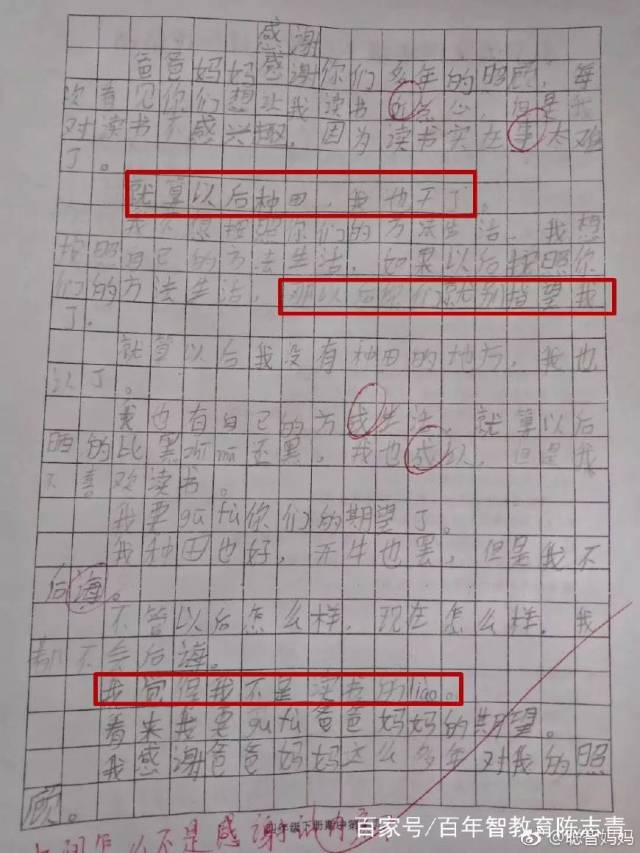 感谢
爸爸妈妈感谢你们多年的照顾，每
次看见你们想让我读书 心，但是我
对读书不感兴趣，因为读书实在 太难
了。
就算以后种田，我也 了。
我不 按照你们的方法生活，我想
按照自己的方法生活，如果以后按照你
们的方法生活， 以后你们就别指望我
了。
就算以后我没有种田的地方，我也
认了。
我也有自己的方 生活，就算以后
晒的比黑 还黑，我也 ，但是我
不喜欢读书。
我要gu fu你们的期望了。
我种田也好， 牛也罢，但是我不
后海。
不管以后怎么样，现在怎么样，我
都不会后海。
我 但我不是读书的liao。
看来我要gu fu爸爸妈妈的期望。
我感谢爸爸妈妈这么多年对我的照
顾。
怎么不是感谢
百家号/百年智教育陈志青
@聪智妈妈